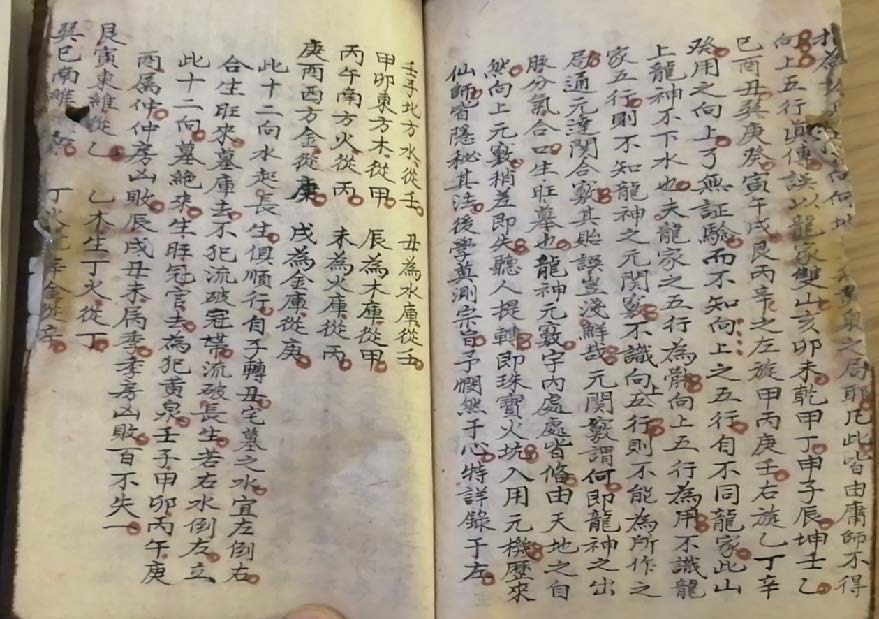 黃泉之局耶凡此皆由庸師不得
向上五行真傳誤以龍家雙山亥卯未乾甲丁申子辰坤壬乙
巳酉丑巽庚癸寅午戌艮丙辛之左旋甲丙庚壬右旋乙丁辛
癸用之向上了無証驗而不知向上之五行自不同龍家此山
上龍神不下水也夫龍家之五行為骸向上五行為用不識龍
家五行則不知龍神之元関竅不識向上五行則不能為所作之
居通元達関合竅其貽誤豈淺鮮哉元関竅謂何即龍神之出
脉分氣合口生旺墓也龍神元竅宇內處處皆俻由天地之自
然向上元竅稍差即失聽人挺轉即珠寶火坑入用元機歷來
仙師皆隱秘其法後學奠測宗旨予憫然于心特詳錄于左
壬子北方水從壬 丑為水庫從壬
甲卯東方木從甲 辰為木庫從甲
丙午南方火從丙 未為火庫從丙
庚酉西方金從庚 戌為金庫從庚
此十二向水起長生俱順行自子轉丑宅墓之水宜左倒右
合生旺來墓庫去不犯流破冠帶流破長生若右水倒左立
此十二向墓絕來生旺冠官去為犯黃泉壬子甲卯丙午庚
酉属仲仲房凶敗辰戌丑未属季季房凶敗百不失一
艮寅東維從乙 乙木生丁火從丁
巽巳南維 丁火 金從辛